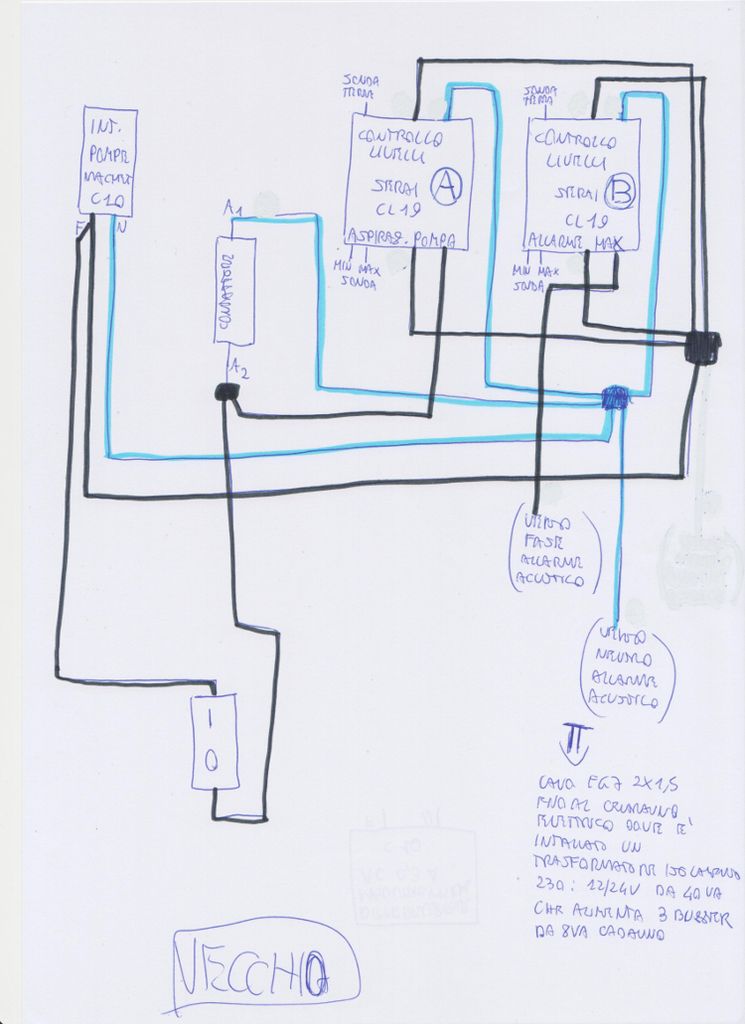 INT.
POMPE
MAGNET
C10
F N
A1
CONTATTORE
A2
SONDA
TERRA
CONTROLLO
LIVELLI
SERAI A
CL19
ASPIRAZ. POMPA
MIN MAX
SONDA
SONDA
TERRA
CONTROLLO
LIVELLI
SERAI B
CL19
ALLARME MAX
MIN MAX
SONDA
(VERSO
FASE
ALLARME
ACUSTICO)
(VERSO
NEUTRO
ALLARME
ACUSTICO)
CAVO FG7 2X1,5
FINO AL
ELETTRICO DOVE E'
INTALLATO UN
TRASFORMATORE ISOLAMENTO
230: 12/24V DA 40VA
CHE ALIMENTA 3 BUZZER
DA 8VA CADAUNO
I
O
VECCHIO